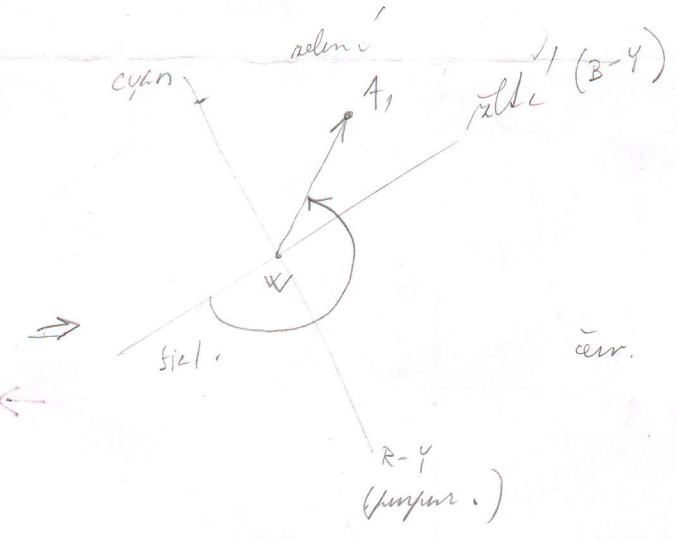 zelená
cyan
A₁
žltá (B-Y)
W
fial.
červ.
R-Y
(purpur.)